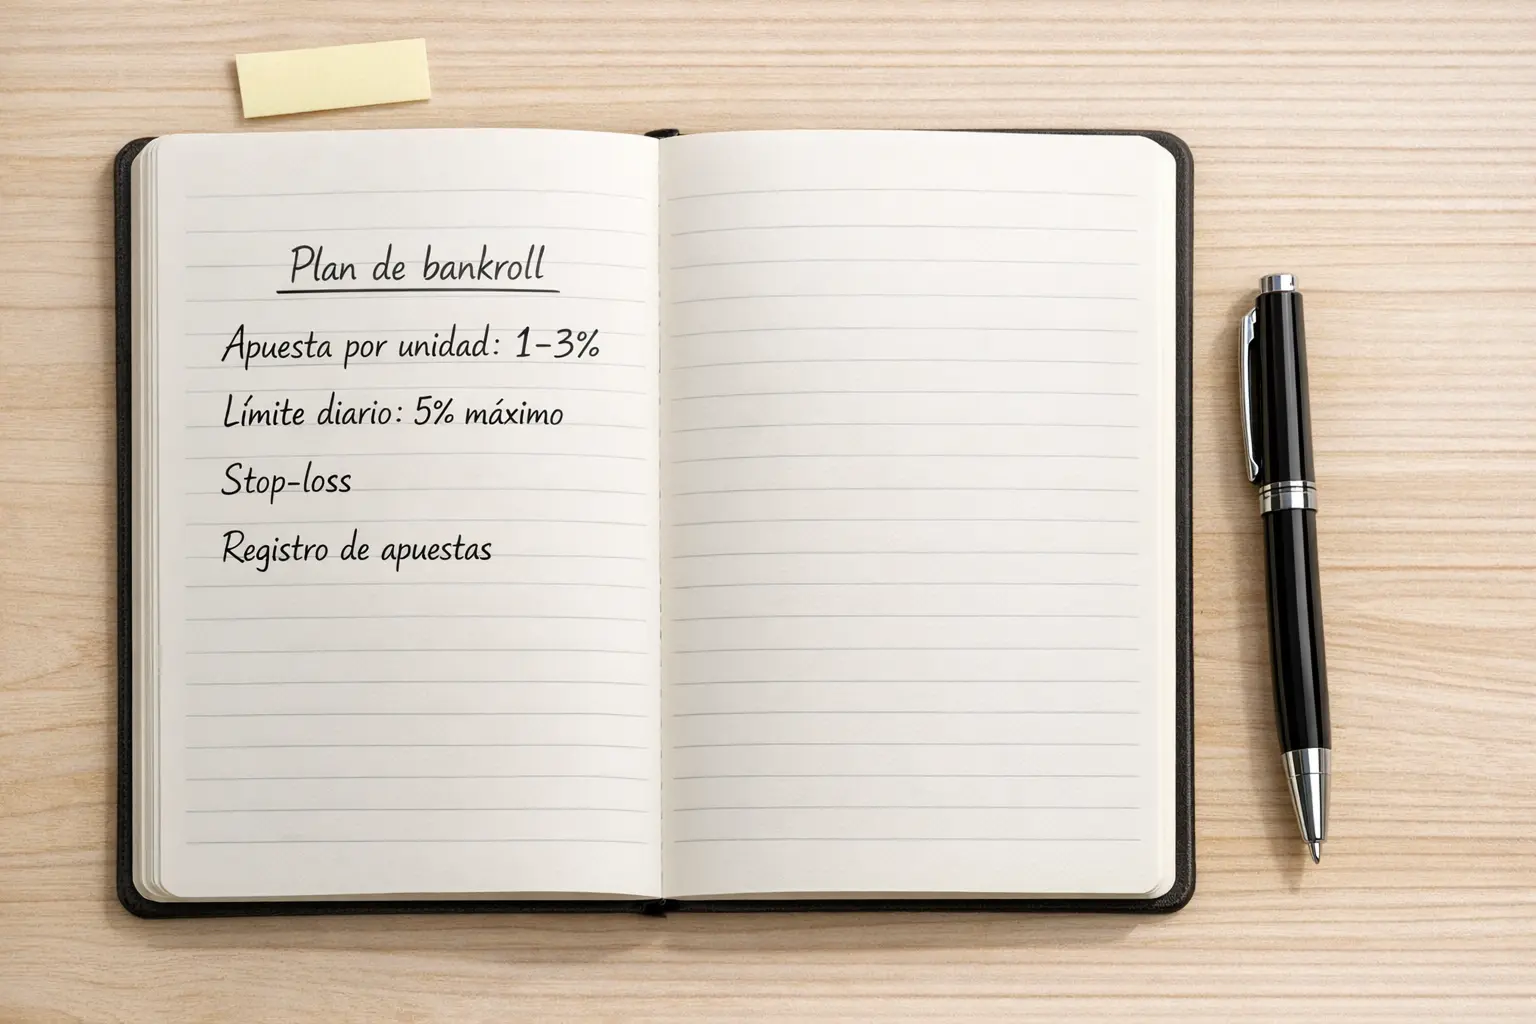 Plan de bankroll
Apuesta por unidad: 1–3%
Límite diario: 5% máximo
Stop-loss
Registro de apuestas